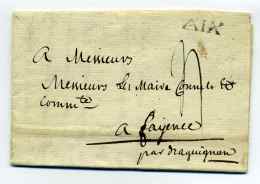 AIX
A Messieurs
Messieurs les Maire Consuls de
Comm.té
a fayence
par draguignan